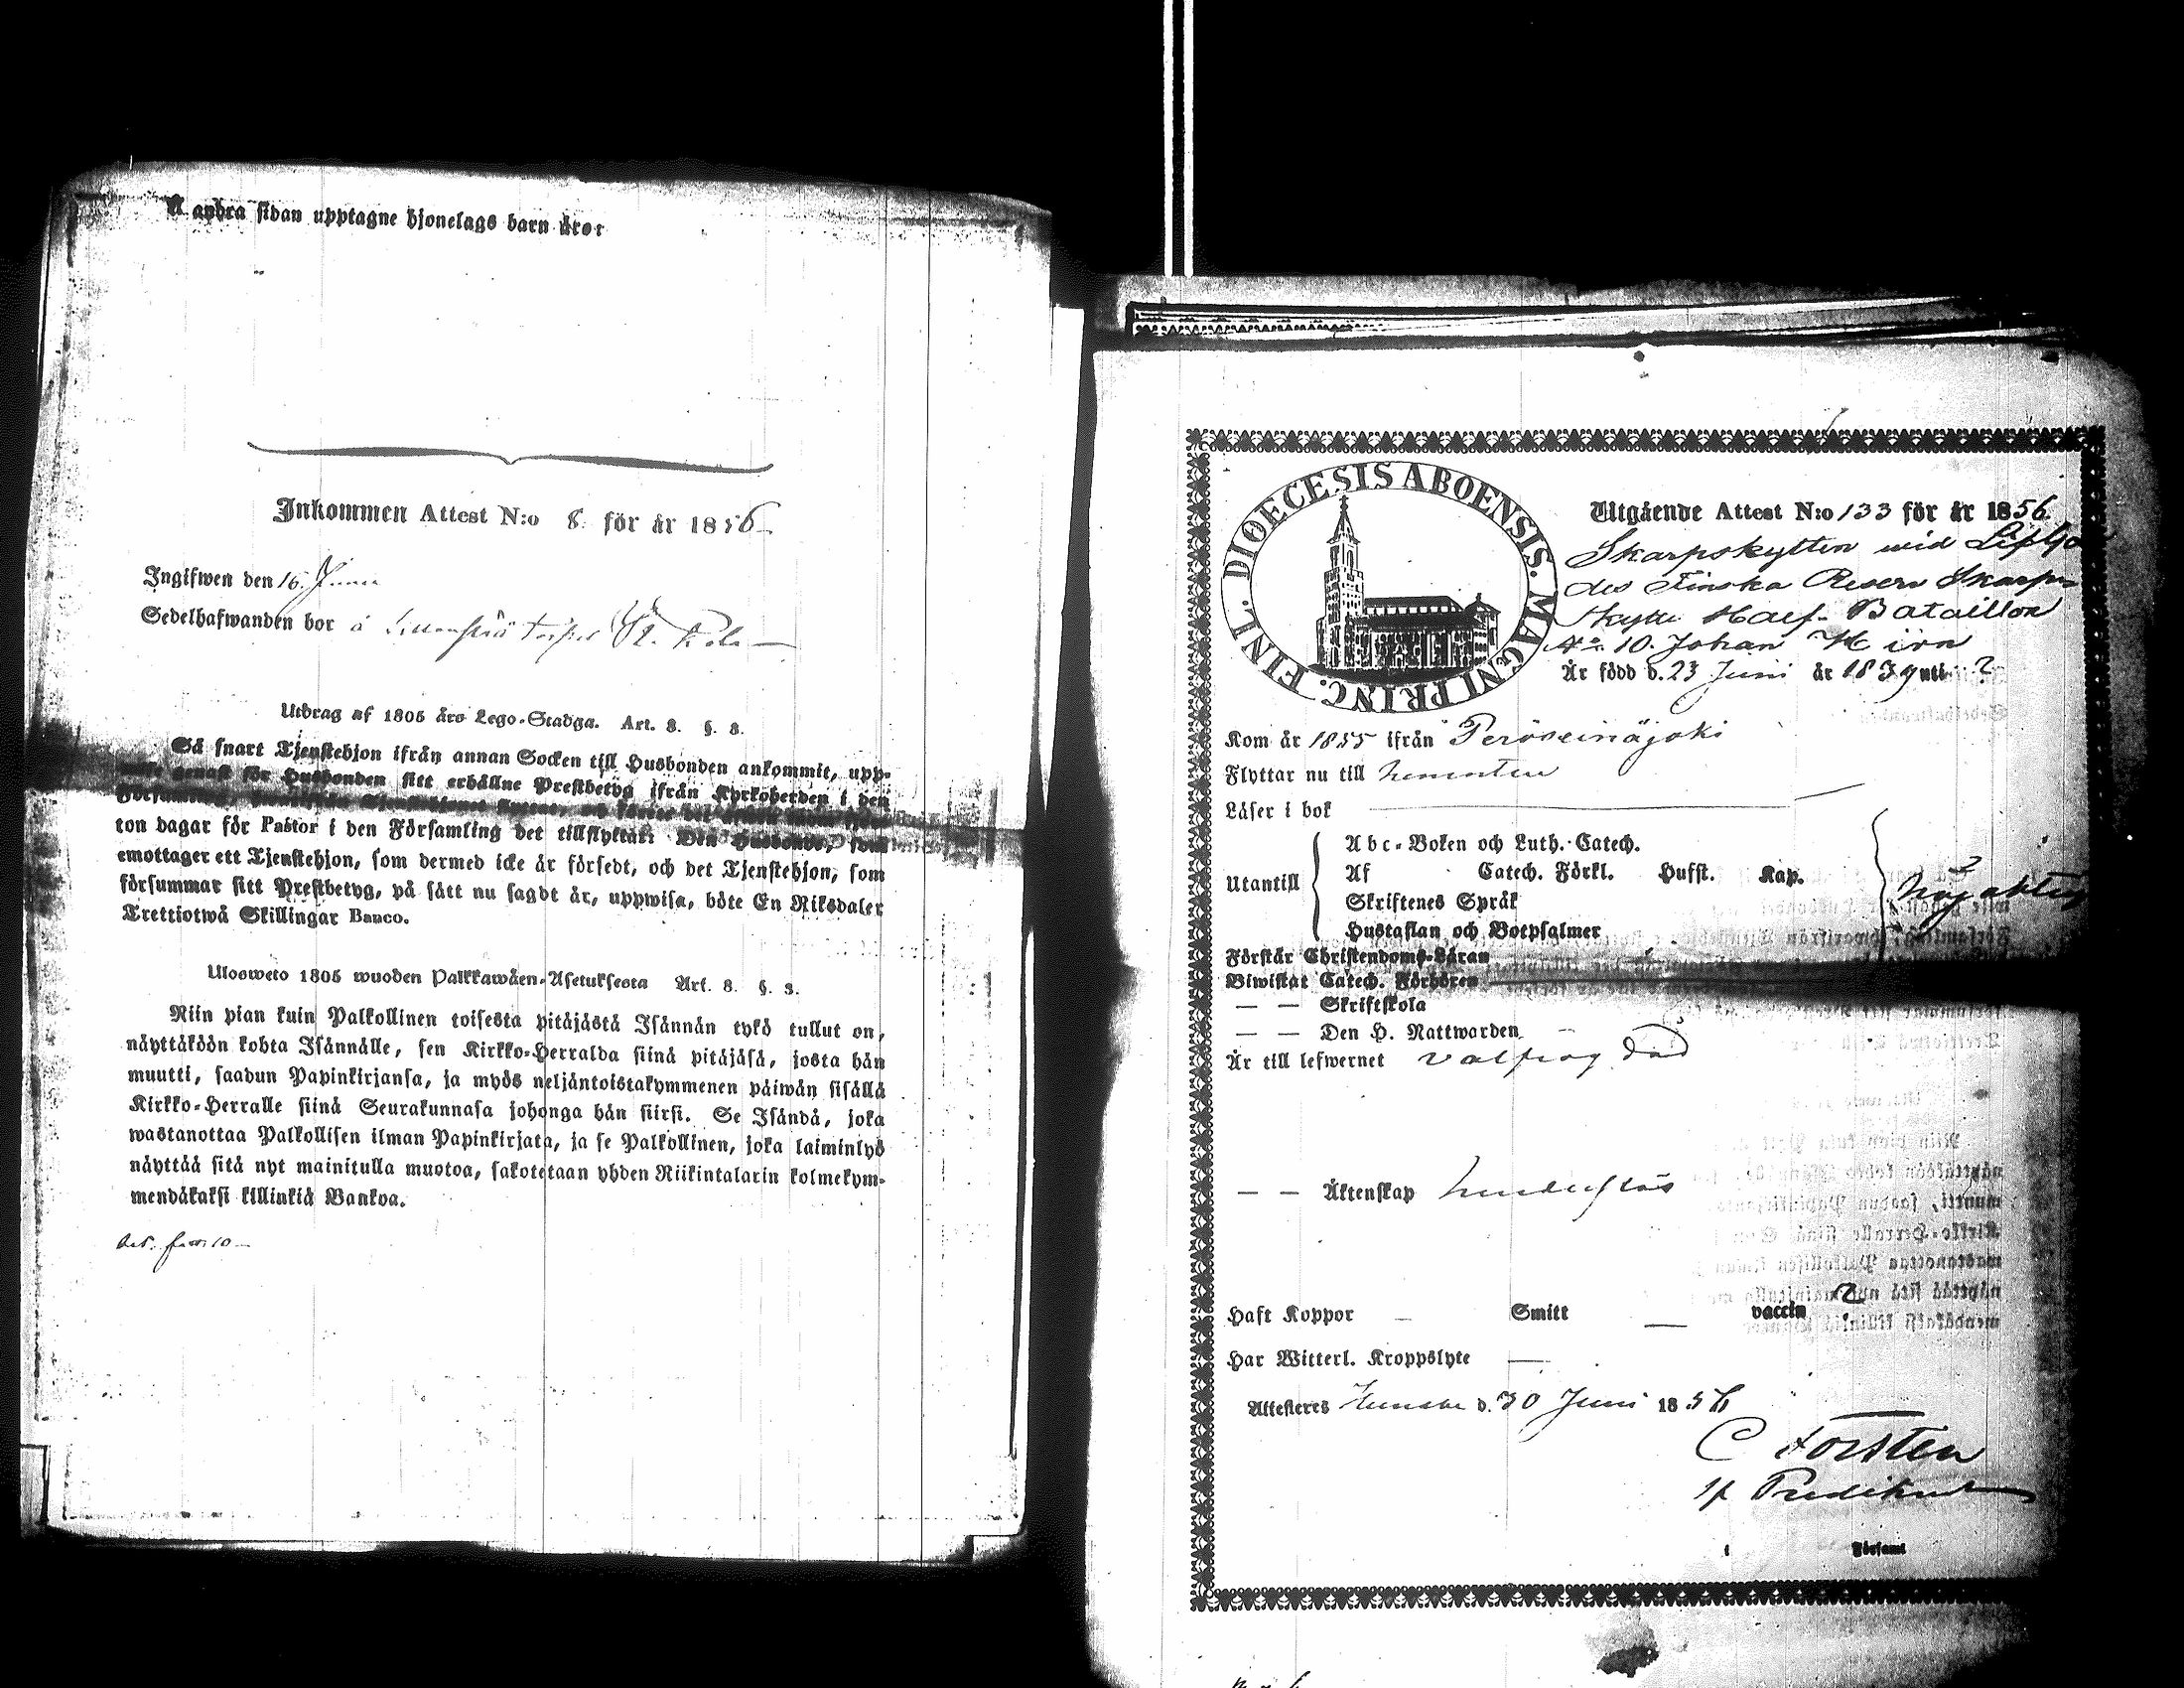 Å andra sidan upptagne hjonelags barn äro:
Inkommen Attest N:o 8 för år 1856
Ingifwen den 16
Sedelhafwanden bor å
Utdrag af 1805 års Lego-Stadga. Art. 8. §. 3.
Så snart Tjenstehjon ifrån annan Socken till Husbonden ankommit, upp-
wise genast för Husbonden sitt erhållne Prestbetyg ifrån Kyrkoherden i den
Församling,
ton dagar för Pastor i den Församling det tillflyttat: Den Husbonde, som
emottager ett Tjenstehjon, som dermed icke är försedt, och det Tjenstehjon, som
försummar sitt Prestbetyg, på sätt nu sagdt är, uppwisa, böte En Riksdaler
Trettiotwå Skillingar Banco.
Ulosweto 1805 wuoden Palkkawäen-Asetuksesta Art. 8. §. 3.
Niin pian kuin Palkollinen toisesta pitäjästä Isännän tykö tullut on,
näyttäköön kohta Isännälle, sen Kirkko-Herralda siinä pitäjäsä, josta hän
muutti, saadun Papinkirjansa, ja myös neljäntoistakymmenen päiwän sisällä
Kirkko-Herralle siinä Seurakunnasa johonga hän siirsi. Se Isändä, joka
wastanottaa Palkollisen ilman Papinkirjata, ja se Palkollinen, joka laiminlyö
näyttää sitä nyt mainitulla muotoa, sakotetaan yhden Riikintalarin kolmekym-
mendäkaksi killinkiä Bankoa.
DIOECESIS ABOENSIS. MAGNI PRINC. FINL.
Utgående Attest N:o 133 för år 1856.
Skarpskytten wid
des Finska Reserv Skarp-
skytte Half-Bataillon
No 10. Johan
Är född d. 23 Juni år 1839 uti
Kom år 1855 ifrån Peräseinäjoki
Flyttar nu till
Läser i bok
Abc-Boken och Luth. Catech.
Utantill Af Catech. Förkl. Hufst. Kap.
Skriftenes Språk
Hustaflan och Botpsalmer
Förstår Christendoms-Läran
Biwistat Catech. Förhören
— — Skriftskola
— — Den H. Nattwarden
Är till lefwernet
— — Äktenskap
Haft Koppor — Smitt — vaccin
Har Witterl. Kroppslyte —
Attesteres d. 30 Juni 1856
C Forstén
Predikant
i Församl